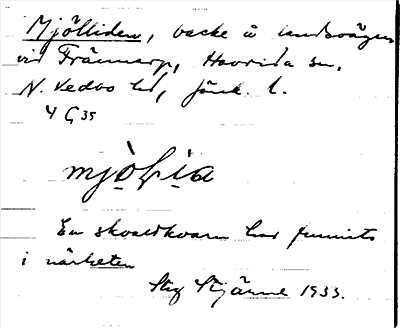 Mjölliden, backe å landsvägen
vid Frännarp, Haurida sn,
N. Vedbo hd, Jönk. l.
4 G 35
En skvaltkvarn har funnits
i närheten
Stig Stjärne 1933.